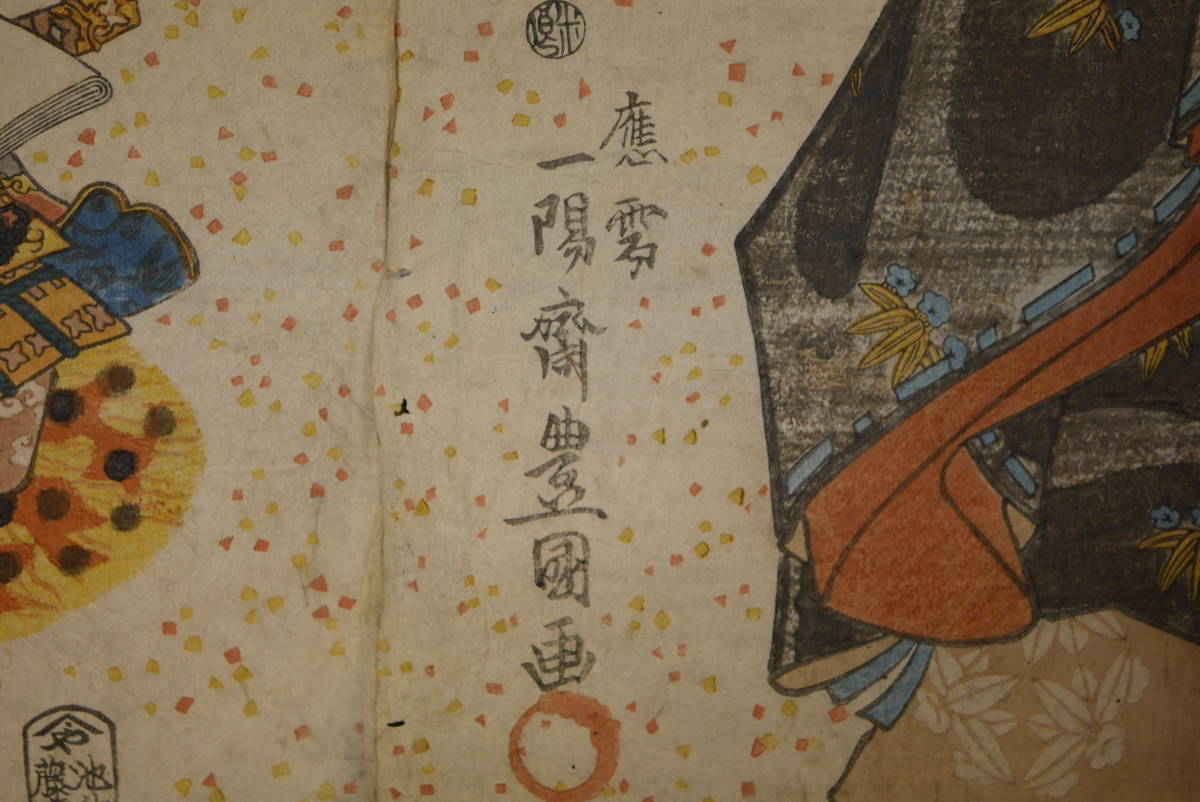 應需
一陽齋豊國画
や
池
藤